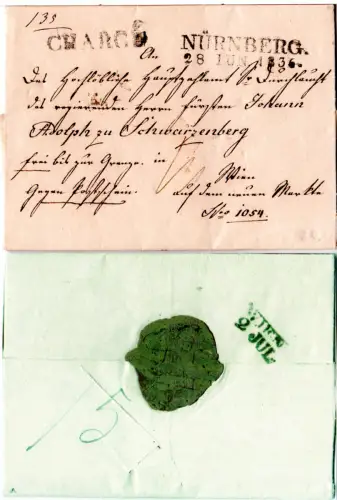 135
CHARGÉ
NÜRNBERG.
28 JUN. 1836.
An
Das Hochlöbliche Hauptzahlamt Sr Durchlaucht
des regierenden Herrn Fürsten Johann
Adolph zu Schwarzenberg
frei bis zur Grenze. in
Wien
Gegen Postschein. auf dem neuen Markte
Nro 1054.
WIEN
2 JUL.
5